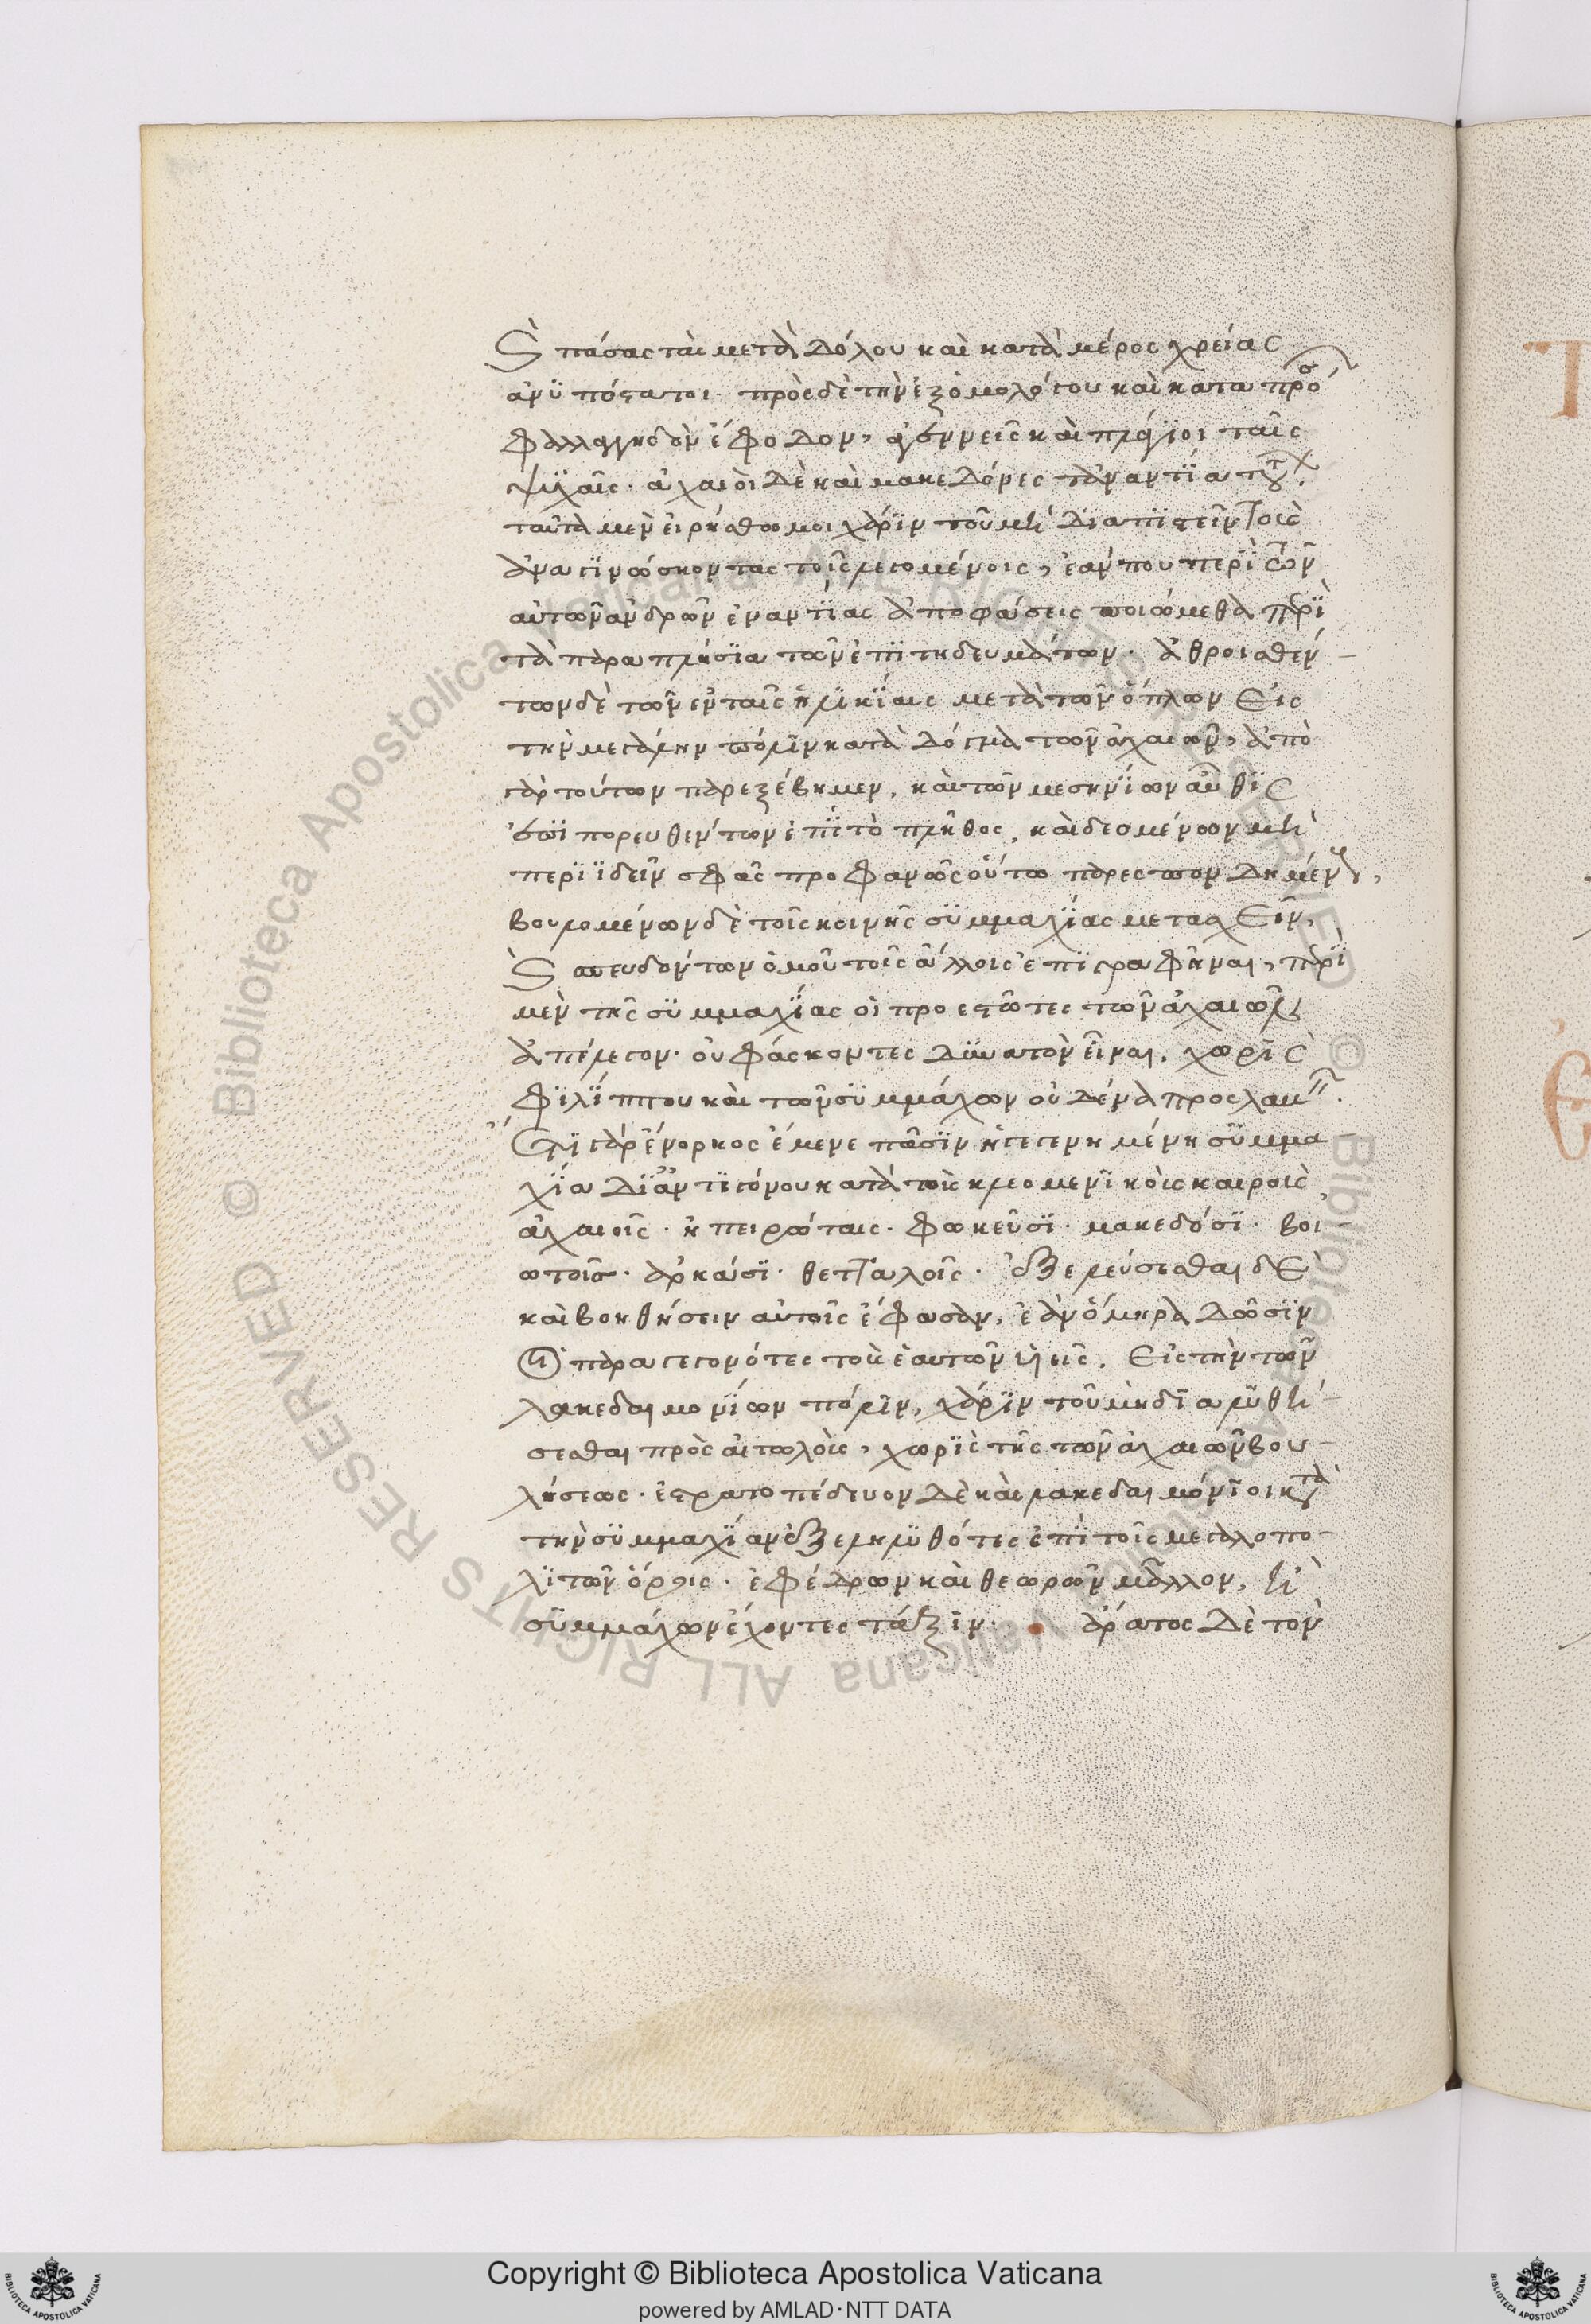 ϗ πάσας τὰς μετὰ δόλου καὶ κατὰ μέρος χρείας
ἀνϋπόστατοι. πρὸς δὲ τὴν ἐξομολόγου καὶ κατα πρόσ
φαλλαγγηδὸν ἔφοδον, ἀγεννεῖς καὶ πλάγιοι ταῖς
ψυχαῖς. ἀχαιοὶ δὲ καὶ μακεδόνες τἀναντία τούτ.
ταῦτα μὲν εἰρήσθω μοι χάριν τοῦ μὴ διαπιστεῖν τοὺς
ἀναγινώσκοντας τοῖς λεγομένοις, ἐάν που περὶ τῶν
αὐτῶν ἀνδρῶν ἐναντίας ἀποφάσεις ποιώμεθα περὶ
τὰ παραπλήσια τῶν ἐπιτηδευμάτων. ἀθροισθέν-
των δὲ τῶν ἐν ταῖς ἡλικίαις μετὰ τῶν ὅπλων εἰς
τὴν μεγάλην πόλιν κατὰ δόγμα τῶν ἀχαιῶν, ἀπὸ
γὰρ τούτων παρεξέβημεν, καὶ τῶν μεσηνίων αὖθις
ἐπιπορευθέντων ἐπὶ τὸ πλῆθος, καὶ δεομένων μὴ
περιϊδεῖν σφᾶς προφανῶς οὕτω παρεσπονδημέν,
βουλομένων δὲ τοῖς κοινῆς συμμαχίας μετασχεῖν,
ϗ σπευδόντων ὁμοῦ τοῖς ἄλλοις ἐπιγραφῆναι, περὶ
μὲν τῆς συμμαχίας οἱ προεστῶτες τῶν ἀχαιῶν
ἀπέλεγον. οὐ φάσκοντες δυνατὸν εἶναι, χωρὶς
φιλίππου καὶ τῶν συμμάχων οὐδένα προσλαβεῖν.
ἔτι γὰρ ἔνορκος ἔμενε πᾶσιν ἡ γεγενημένη συμμα
χία δι' ἀντιγόνου κατὰ τοὺς κλεομενικοὺς καιροὺς
ἀχαιοῖς. ἠπειρώταις. φωκεῦσι. μακεδόσι. βοι-
ωτοῖς. ἀρκάσι. θετταλοῖς. ἐξελεύσεσθαι δὲ
καὶ βοηθήσειν αὐτοῖς ἔφασαν, ἐὰν ὅμηρα δῶσιν
οἱ παραγεγονότες τοὺς ἑαυτῶν υἱεῖς, εἰς τὴν τῶν
λακεδαιμονίων πόλιν, χάριν τοῦ μὴ διαλυθή-
σεσθαι πρὸς αἰτωλοὺς, χωρὶς τῆς τῶν ἀχαιῶν βου-
λήσεως. ἐστρατοπέδευον δὲ καὶ λακεδαιμόνιοι κατὰ
τὴν συμμαχίαν ἐξεληλυθότες ἐπὶ τοῖς μεγαλοπο-
λιτῶν ὅροις. ἐφέδρων καὶ θεωρῶν μᾶλλον, ἢ
συμμάχων ἔχοντες τάξιν. ἄρατος δὲ τὸν
Copyright © Biblioteca Apostolica Vaticana
powered by AMLAD·NTT DATA